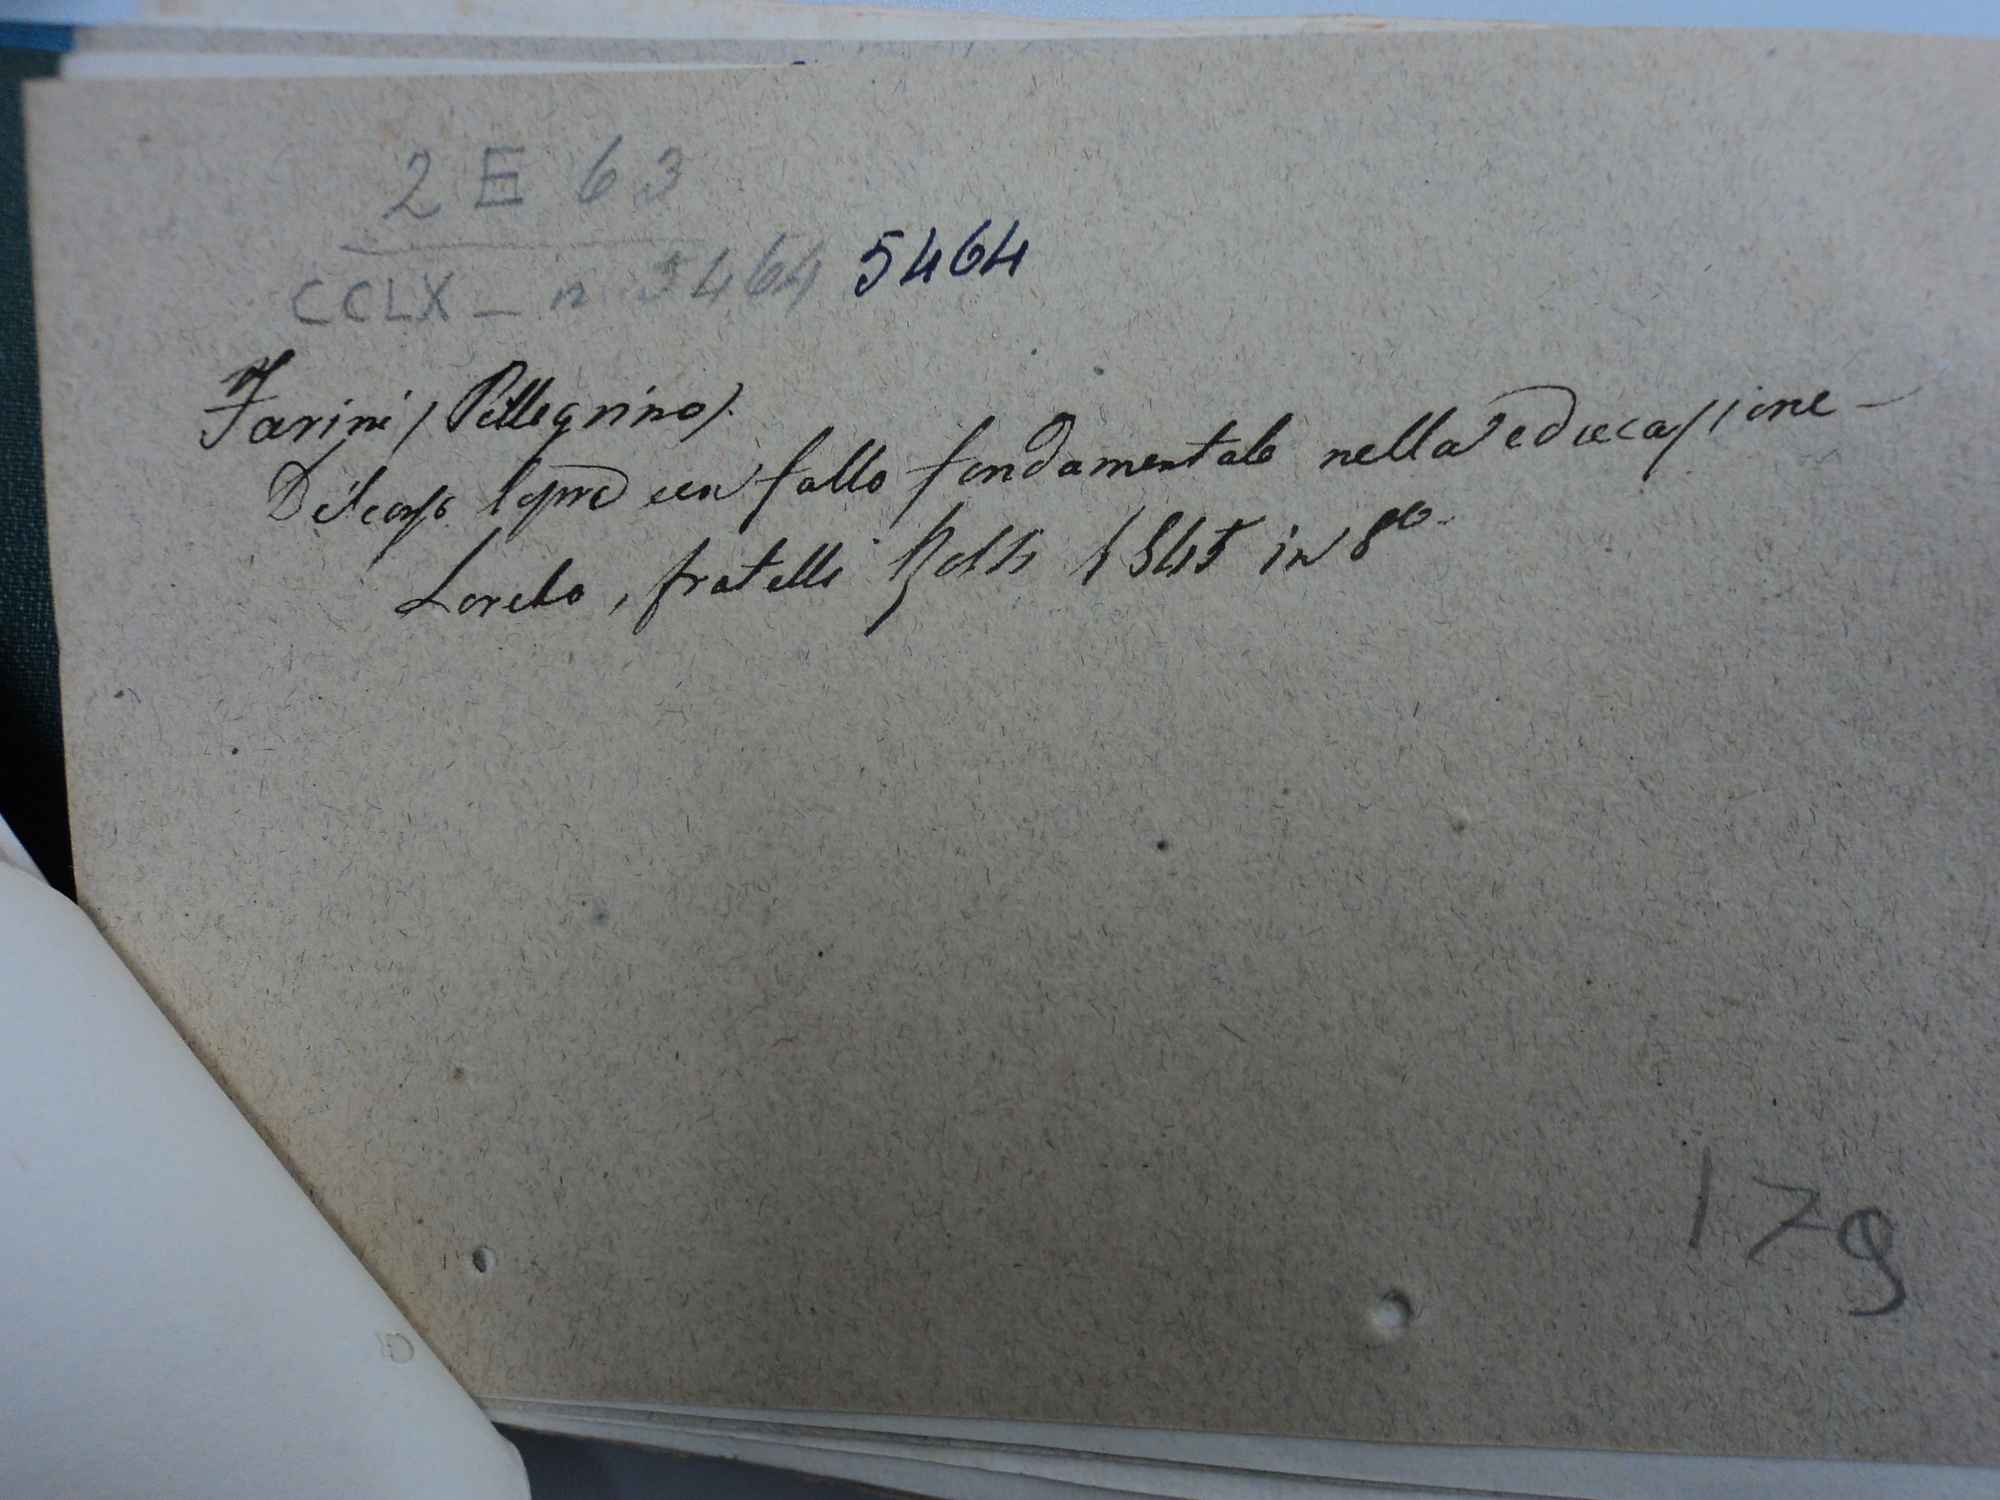 2 E 63
CCLX _ n 5464 5464
Farini (Pellegrino).
Discorso sopra un fallo fondamentale nella educazione -
Loreto, fratelli Rossi 1845 in 8°-
179